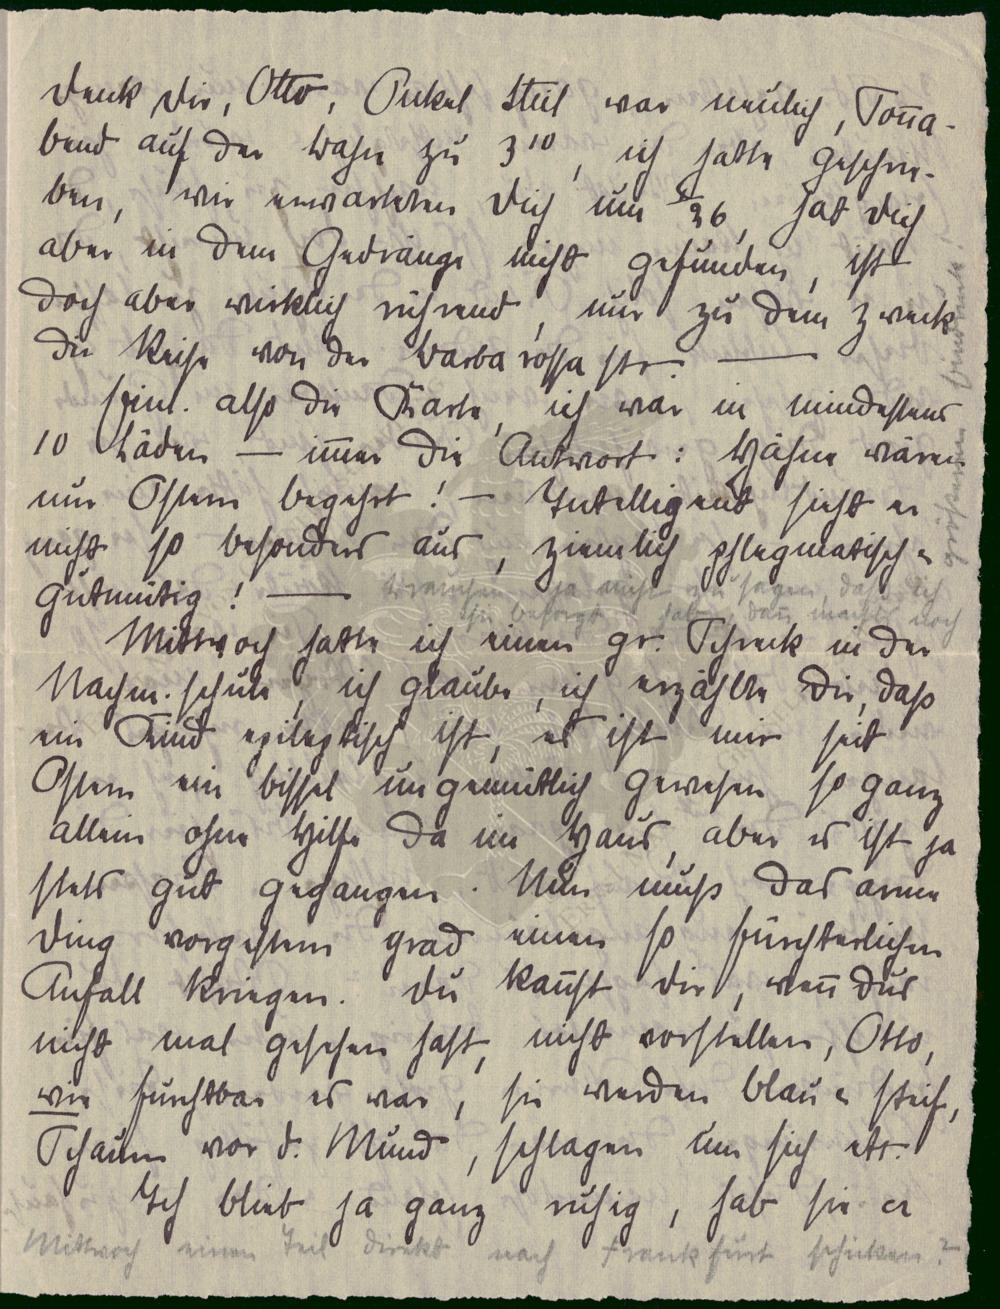 Denk Dir, Otto, Onkel Steil war neulich, Sonna-
bend auf der Bahn zu 3¹⁰, ich hatte geschrie-
ben, wir erwarteten Dich um ½6, hat Dich
aber in dem Gedränge nicht gefunden, ist
doch aber wirklich rührend, nur zu dem Zweck
die Reise von der Barbarossastr. —
Heinl. also die Karte, ich war in mindestens
10 Läden — immer die Antwort: Hähne wären
nur Ostern begehrt! — Intelligent sieht er
nicht so besonders aus, ziemlich phlegmatisch u
gutmütig! —
brauchen ja nicht zu sagen, daß ich
sie besorgt habe, dann machts noch
größeren Eindruck!
Mittwoch hatte ich einen gr. Schreck in der
Nachm.schule, ich glaube, ich erzählte Dir, daß
ein Kind epileptisch ist, es ist mir seit
Ostern ein bissel ungemütlich gewesen so ganz
allein ohne Hilfe da im Haus, aber es ist ja
stets gut gegangen. Nun muß das arme
Ding vorgestern grad einen so fürchterlichen
Anfall kriegen. Du kannst Dir, wenn Dus
nicht mal gesehen hast, nicht vorstellen, Otto,
wie furchtbar es war, sie werden blau u steif,
Schaum vor d. Mund, schlagen um sich etc.
Ich blieb ja ganz ruhig, hab sie er
Mittwoch einen Teil direkt nach Frankfurt schicken?